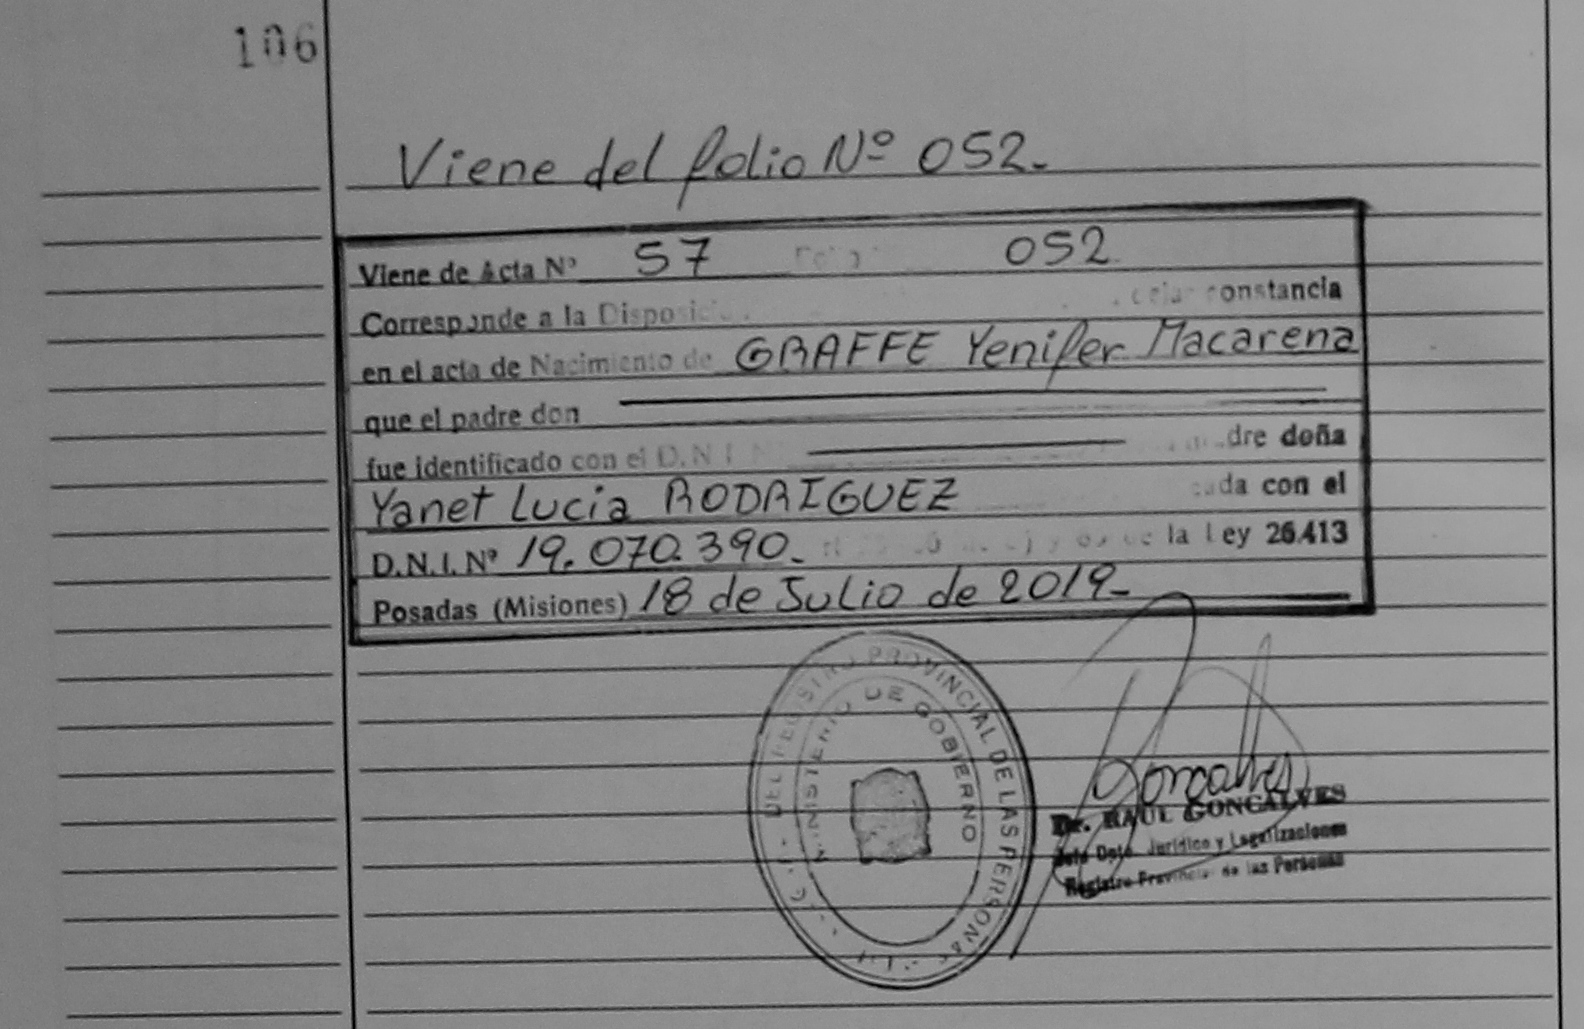 106
Viene del folio Nº 052.
Viene de Acta Nº 57 052
Corresponde a la constancia
en el acta de Nacimiento de GRAFFE Yenifer Macarena
que el padre don
fue identificado con el D.N.I. doña
Yanet Lucia RODRIGUEZ con el
D.N.I. Nº 19.070.390.- la Ley 26.413
Posadas (Misiones) 18 de Julio de 2019.-
DEL REGISTRO PROVINCIAL DE LAS PERSONAS
MINISTERIO DE GOBIERNO
Goncalves
Dr. RAUL GONCALVES
Jefe Dpto. Jurídico y Legalizaciones
Registro Provincial de las Personas